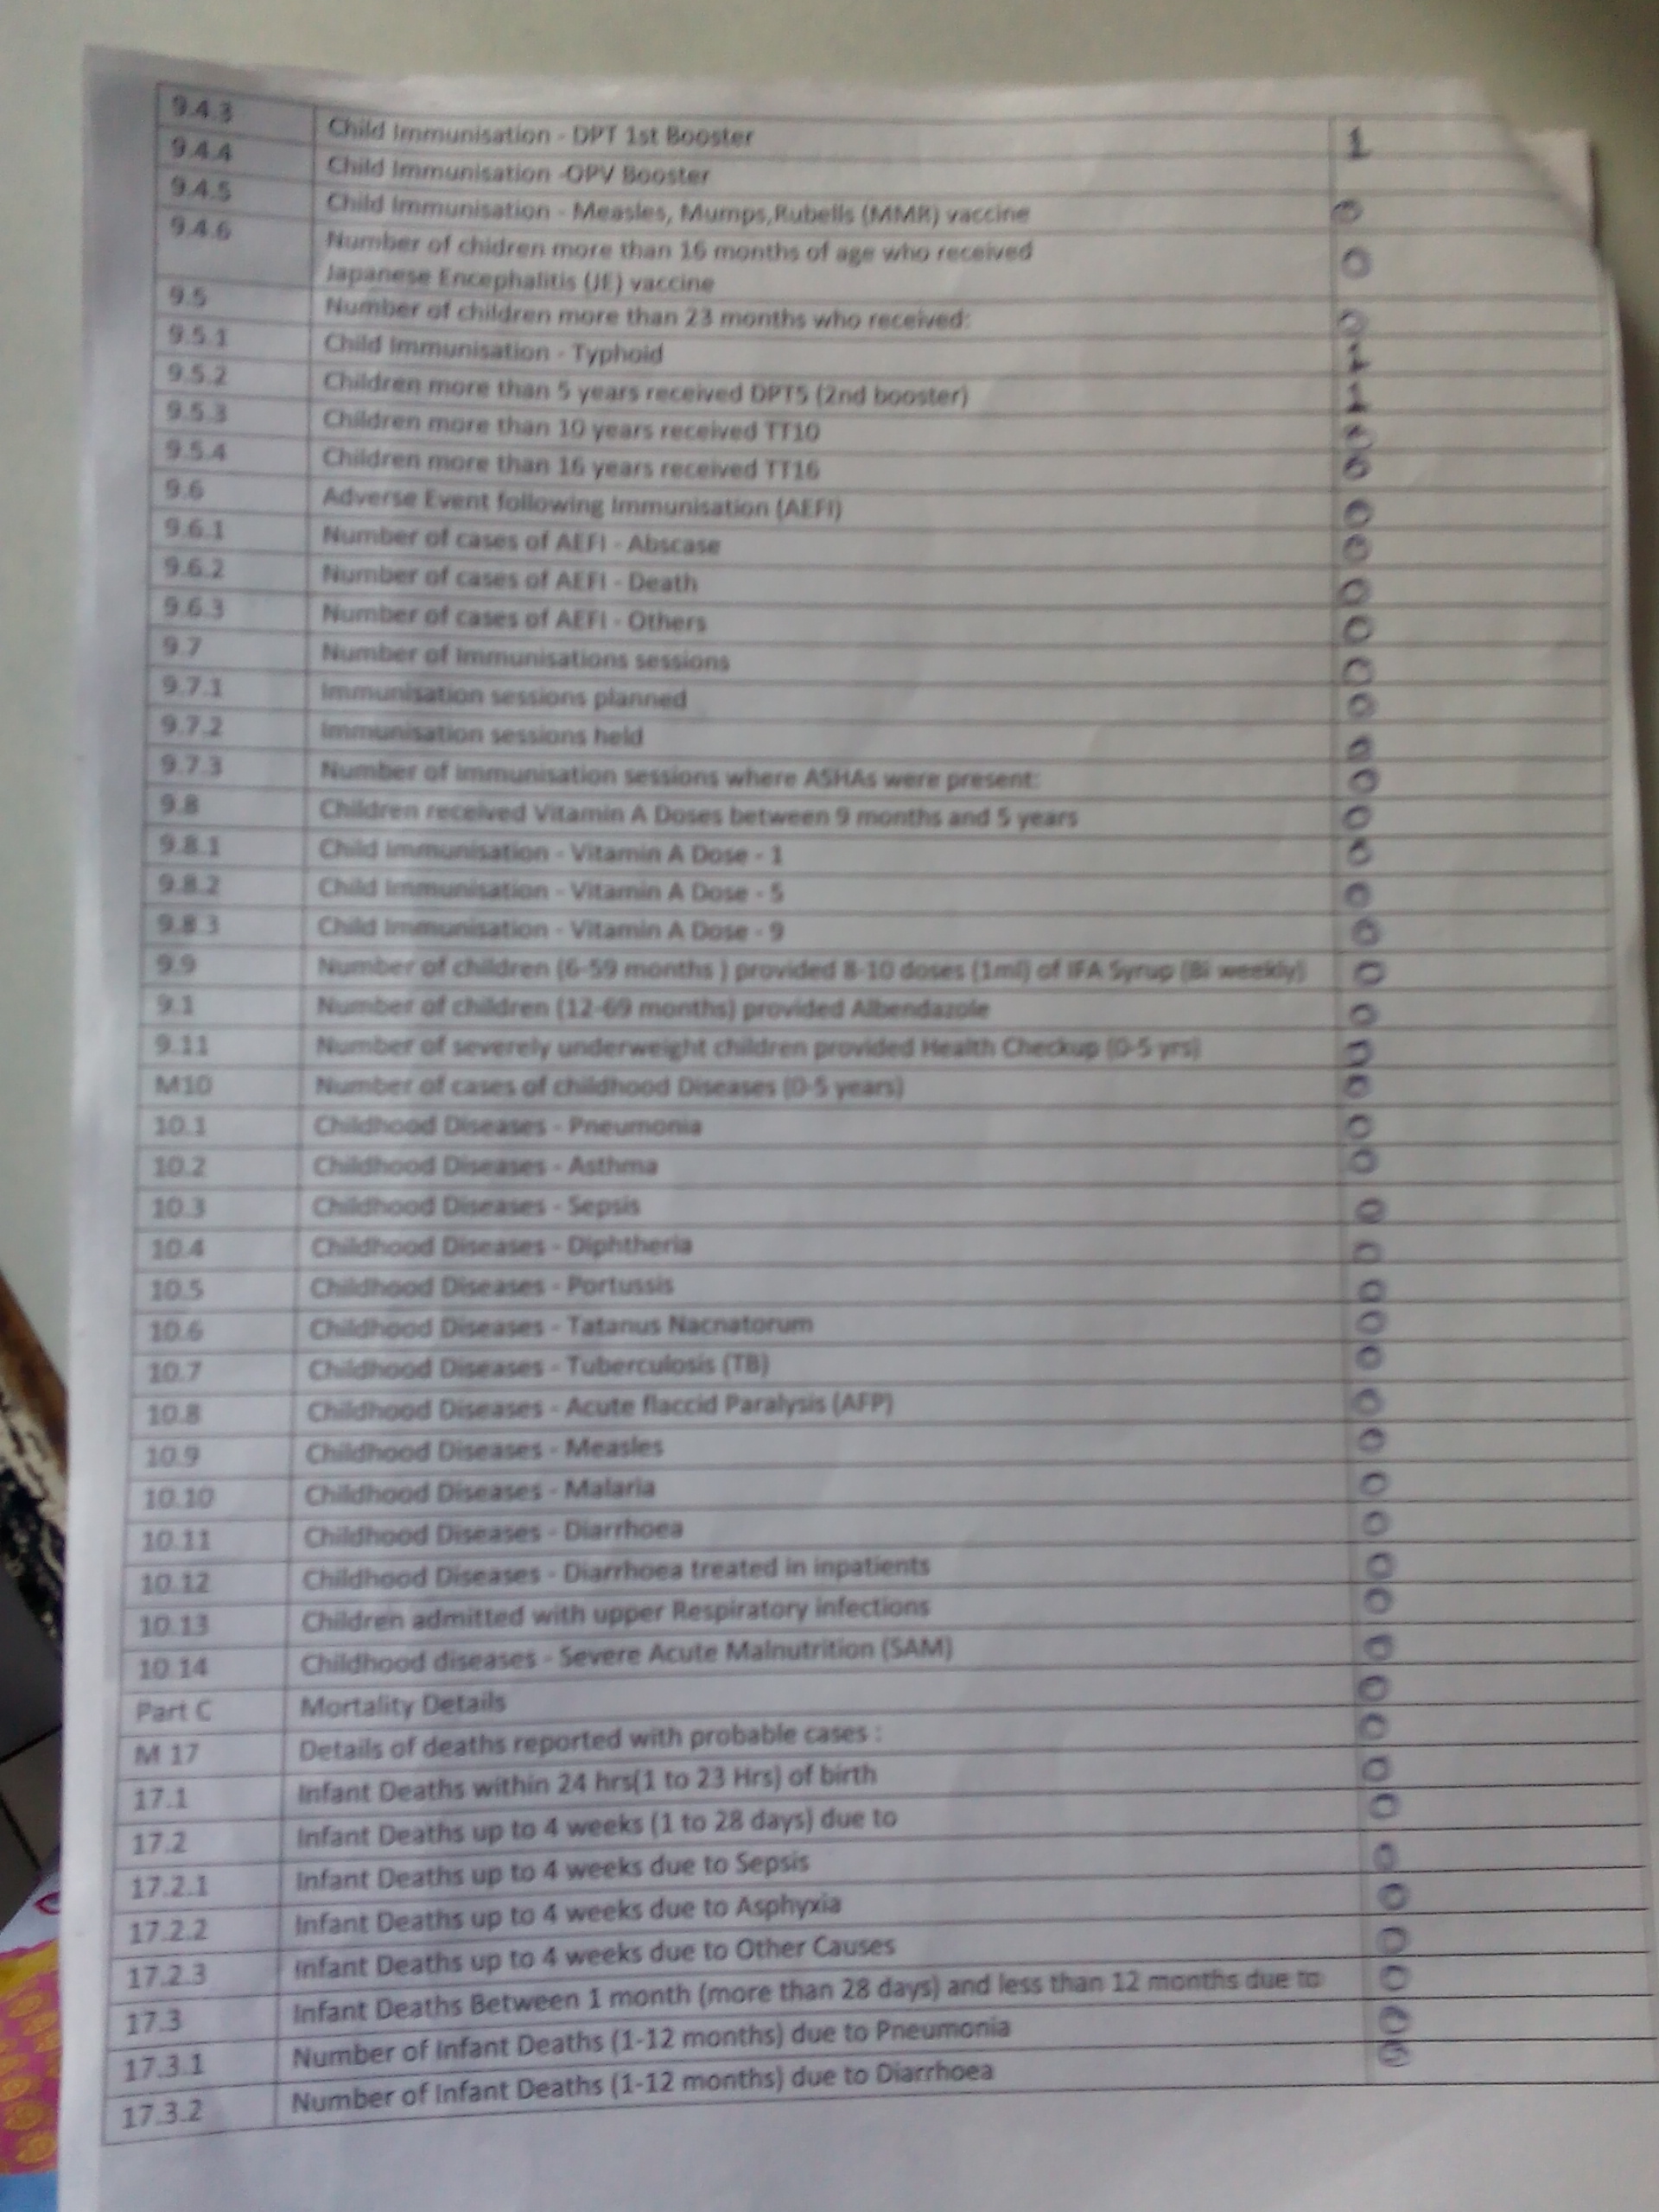 9.4.3 Child Immunisation - DPT 1st Booster 1
9.4.4 Child Immunisation -OPV Booster
9.4.5 Child Immunisation - Measles, Mumps,Rubells (MMR) vaccine 0
9.4.6 Number of chidren more than 16 months of age who received 0
Japanese Encephalitis (JE) vaccine
9.5 Number of children more than 23 months who received: 0
9.5.1 Child Immunisation - Typhoid 1
9.5.2 Children more than 5 years received DPT5 (2nd booster) 1
9.5.3 Children more than 10 years received TT10
9.5.4 Children more than 16 years received TT16
9.6 Adverse Event following Immunisation (AEFI) 0
9.6.1 Number of cases of AEFI - Abscase 0
9.6.2 Number of cases of AEFI - Death 0
9.6.3 Number of cases of AEFI - Others 0
9.7 Number of Immunisations sessions 0
9.7.1 Immunisation sessions planned 0
9.7.2 Immunisation sessions held 0
9.7.3 Number of Immunisation sessions where ASHAs were present: 0
9.8 Children received Vitamin A Doses between 9 months and 5 years 0
9.8.1 Child Immunisation - Vitamin A Dose - 1 0
9.8.2 Child Immunisation - Vitamin A Dose - 5 0
9.8.3 Child Immunisation - Vitamin A Dose - 9 0
9.9 Number of children (6-59 months ) provided 8-10 doses (1ml) of IFA Syrup (Bi weekly) 0
9.1 Number of children (12-69 months) provided Albendazole 0
9.11 Number of severely underweight children provided Health Checkup (0-5 yrs) 0
M10 Number of cases of childhood Diseases (0-5 years) 0
10.1 Childhood Diseases - Pneumonia 0
10.2 Childhood Diseases - Asthma 0
10.3 Childhood Diseases - Sepsis 0
10.4 Childhood Diseases - Diphtheria 0
10.5 Childhood Diseases - Portussis 0
10.6 Childhood Diseases - Tatanus Nacnatorum 0
10.7 Childhood Diseases - Tuberculosis (TB) 0
10.8 Childhood Diseases - Acute flaccid Paralysis (AFP) 0
10.9 Childhood Diseases - Measles 0
10.10 Childhood Diseases - Malaria 0
10.11 Childhood Diseases - Diarrhoea 0
10.12 Childhood Diseases - Diarrhoea treated in inpatients 0
10.13 Children admitted with upper Respiratory infections 0
10.14 Childhood diseases - Severe Acute Malnutrition (SAM) 0
Part C Mortality Details 0
M 17 Details of deaths reported with probable cases : 0
17.1 Infant Deaths within 24 hrs(1 to 23 Hrs) of birth 0
17.2 Infant Deaths up to 4 weeks (1 to 28 days) due to 0
17.2.1 Infant Deaths up to 4 weeks due to Sepsis 0
17.2.2 Infant Deaths up to 4 weeks due to Asphyxia 0
17.2.3 Infant Deaths up to 4 weeks due to Other Causes 0
17.3 Infant Deaths Between 1 month (more than 28 days) and less than 12 months due to 0
17.3.1 Number of Infant Deaths (1-12 months) due to Pneumonia 0
17.3.2 Number of Infant Deaths (1-12 months) due to Diarrhoea 0